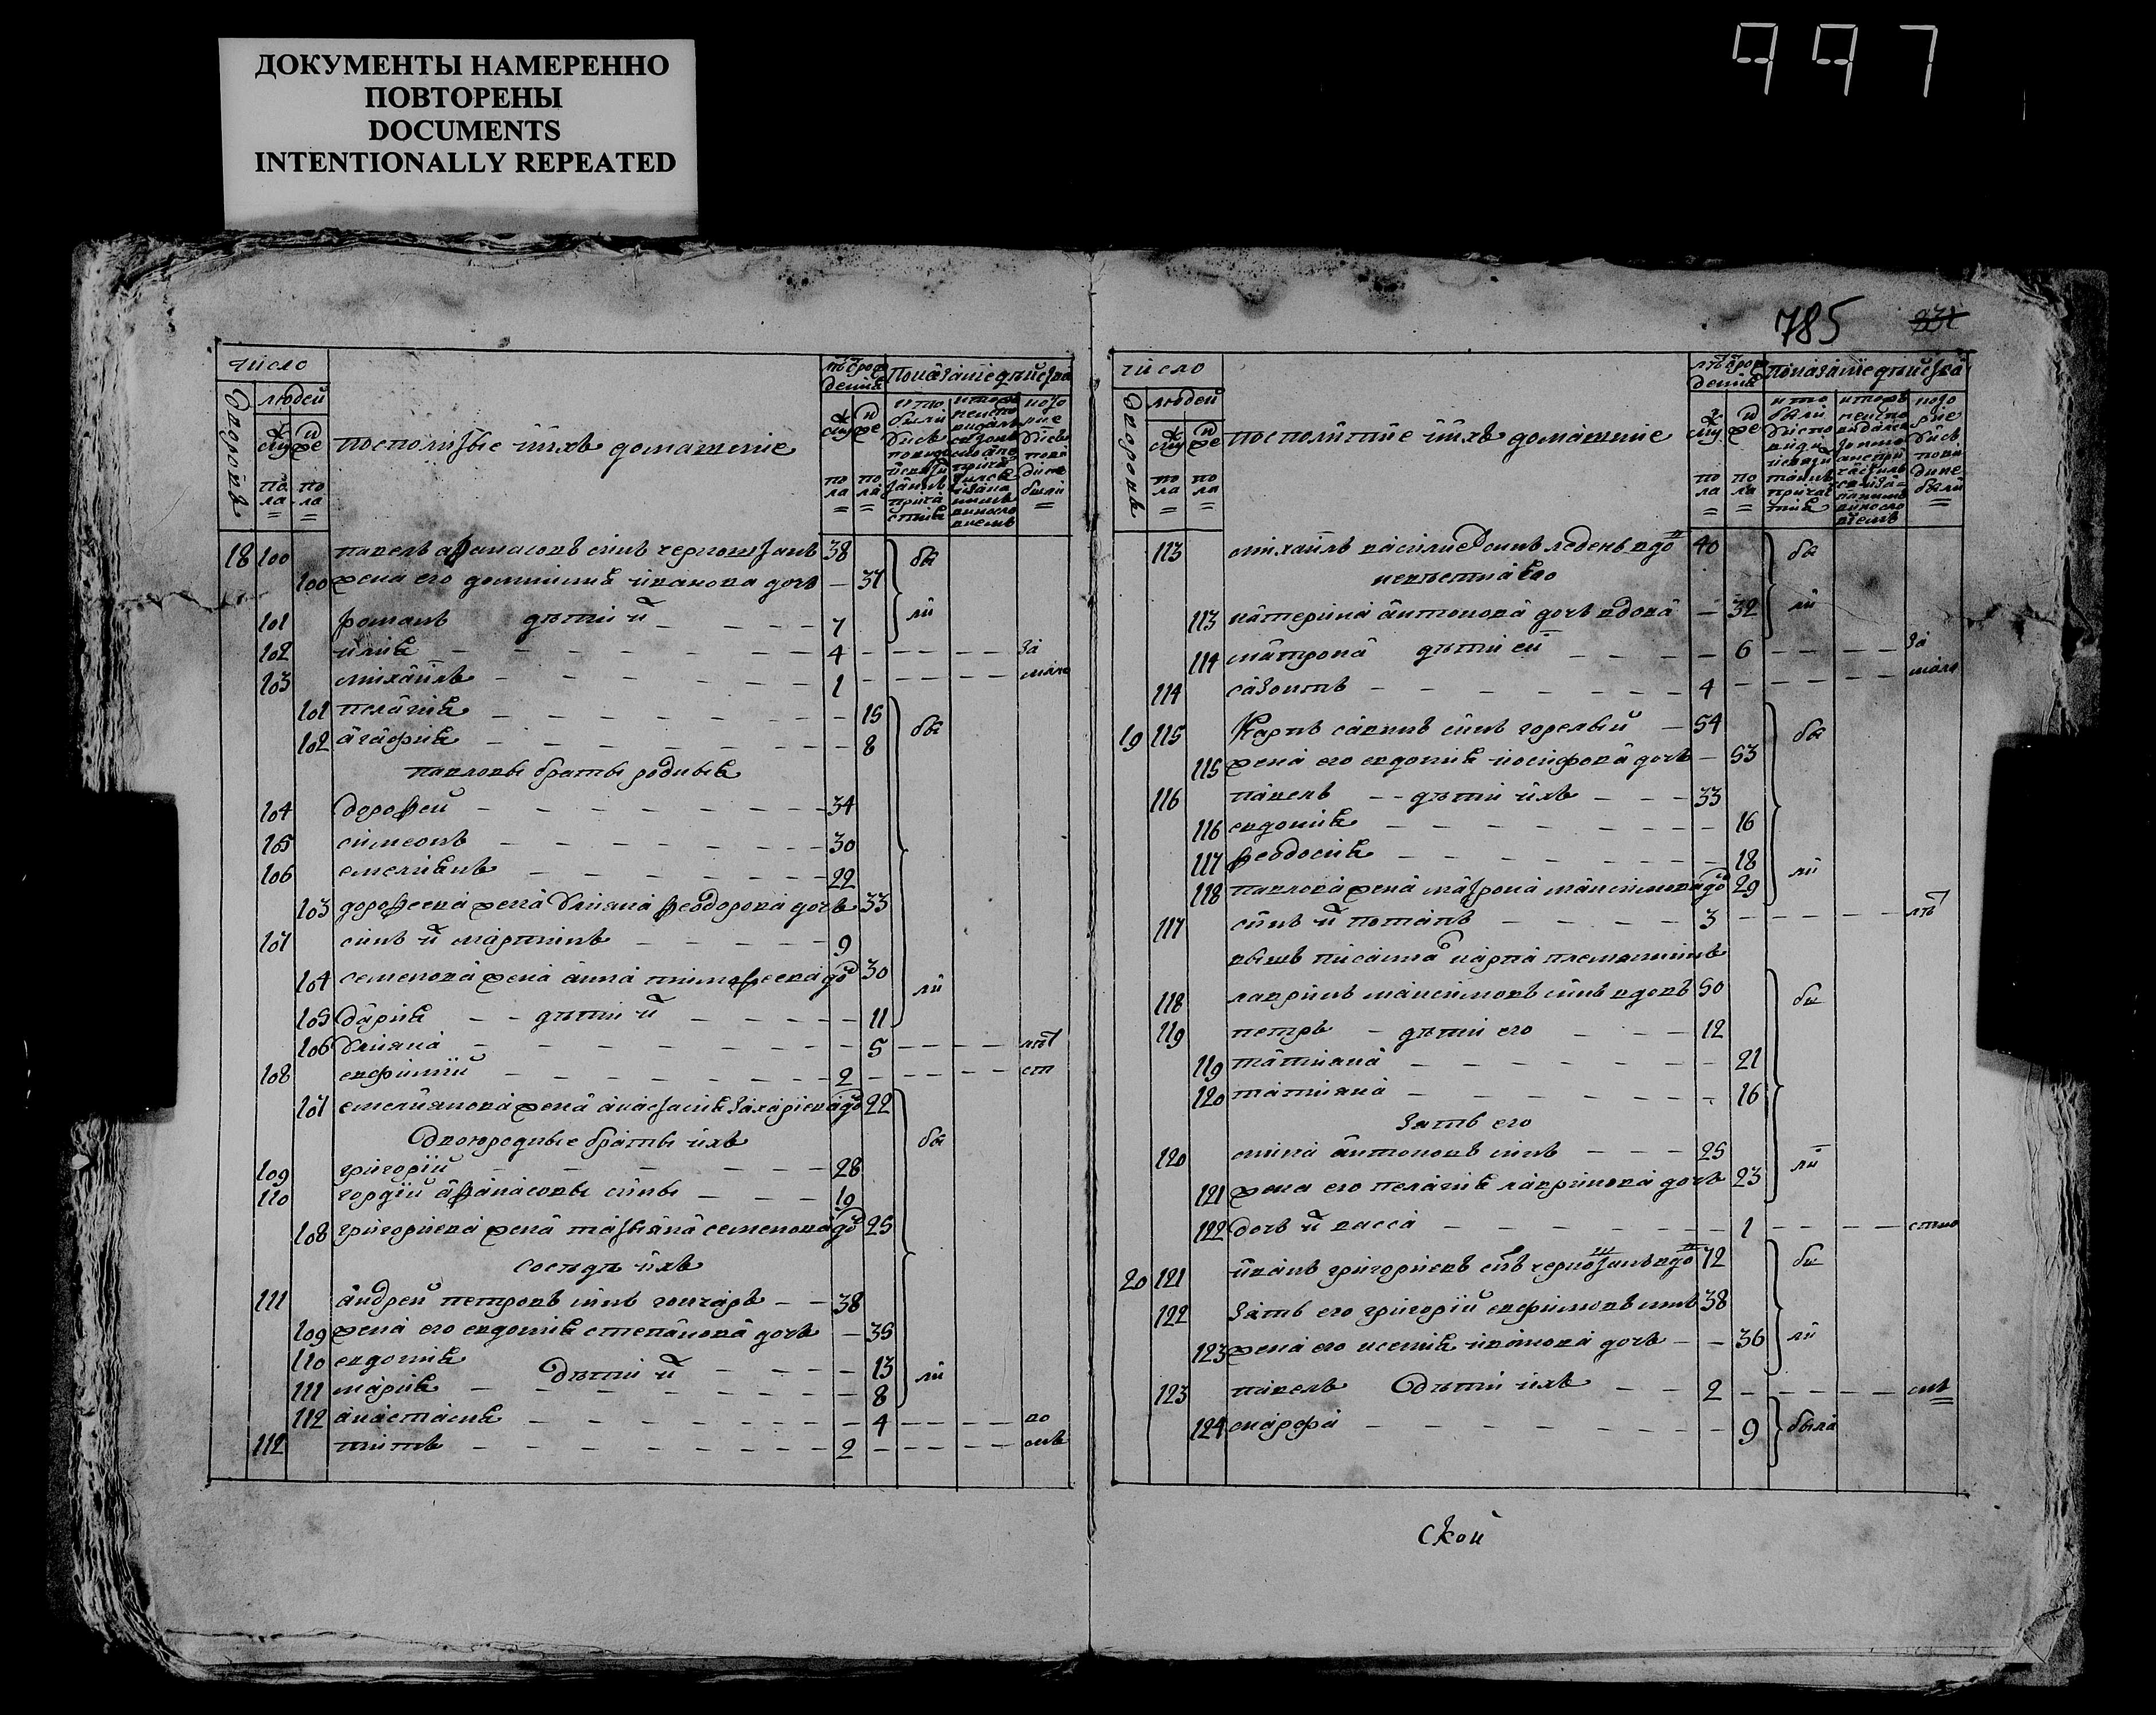 ДОКУМЕНТЫ НАМЕРЕННО
ПОВТОРЕНЫ
DOCUMENTS
INTENTIONALLY REPEATED
997
число
людей
по ла
по ла
посполитые и ихъ домашние
18 100 павелъ афанасовъ синъ 38
100 жена его иванова дочъ — 37
бы
ли
101 романъ дѣти и 7
102 илия 4 за
103 михаилъ 1 мало
101 пелагия 15
102 агафия 8
бы
павловы браты родные
104 дорофей 34
105 симеонъ 30
106 емелиянъ 22
103 дорофеева жена улияна феодорова дочъ 33
107 синъ и мартинъ 9
104 семенова жена анна тимофеева до 30
ли
105 дария дѣти и 11
106 улияна 5 лѣт
108 евфимий 2 ст
107 емелиянова жена анастасия захариева до 22
двоюродные браты ихъ
бы
109 григорий 28
110 гордий афанасовы сины 19
108 григориева жена татияна семенова до 25
сосѣды ихъ
111 андрей петровъ синъ гончаръ 38
109 жена его евдокия степанова дочъ — 35
110 евдокия дѣти и 13
111 мария 8
ли
112 анастасия 4 во
112 титъ 2
785
число
людей
посполитые и ихъ домашние
113 михаилъ василиевъ синъ вдо 40
бы
невѣстка его
113 катерина антонова дочъ вдова — 32
ли
114 матрона дѣти ей 6 за
114 созонтъ 4 мало
19 115 Карпъ савинъ синъ горелый 54
бы
115 жена его евдокия иосифова дочъ 53
116 павелъ дѣти ихъ 33
116 евдокия 16
117 феодосия 18
118 павлова жена матрона максимова до 29
ли
117 синъ и потапъ 3 лѣт
вышъ писанна карпа племянникъ
118 лавринъ максимовъ синъ вдовъ 50
бы
119 петръ дѣти его 12
119 татияна 21
120 татияна 16
зять его
120 мина антоновъ синъ 25
ли
121 жена его пелагия лавринова дочъ 23
122 дочъ и васса 1
20 121 иванъ григориевъ синъ вдо 72
бы
122 зять его григорий евфимовъ синъ 38
123 жена его ксения иванова дочъ 36
ли
123 павелъ Дѣти ихъ 2
124 марфа 9 была
ской